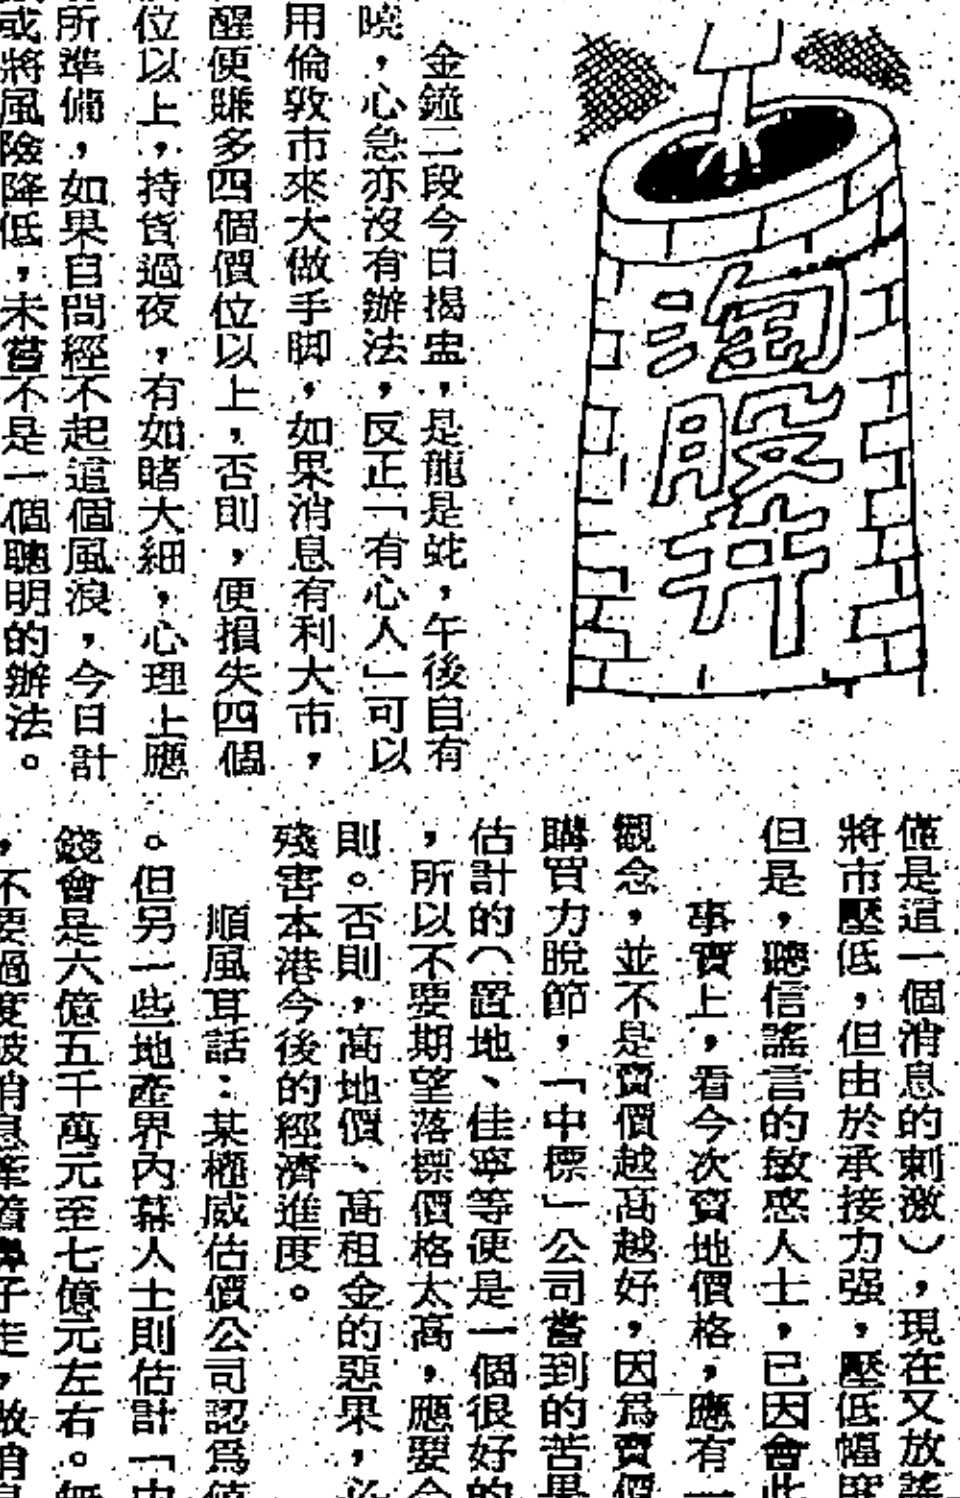 淘股井
金鐘二段今日揭盅，是龍是蛇，午後自有
曉，心急亦沒有辦法，反正「有心人」可以
用倫敦市來大做手脚，如果消息有利大市，
醒便賺多四個價位以上，否則，便損失四個
位以上，持貨過夜，有如賭大細，心理上應
所準備，如果自問經不起這個風浪，今日計
或將風險降低，未嘗不是一個聰明的辦法。
僅是這一個消息的刺激），現在又放謠
將市壓低，但由於承接力强，壓低幅度
但是，聽信謠言的敏感人士，已因會此
事實上，看今次賣地價格，應有一
觀念，並不是賣價越高越好，因爲賣價
購買力脫節，「中標」公司嘗到的苦果
估計的（置地、佳寧等便是一個很好的
，所以不要期望落標價格太高，應要合
則。否則，高地價、高租金的惡果，必
殘害本港今後的經濟進度。
順風耳話：某權威估價公司認爲值
。但另一些地產界內幕人士則估計「中
錢會是六億五千萬元至七億元左右。無
，不要過度被消息牽着鼻子走，做消息